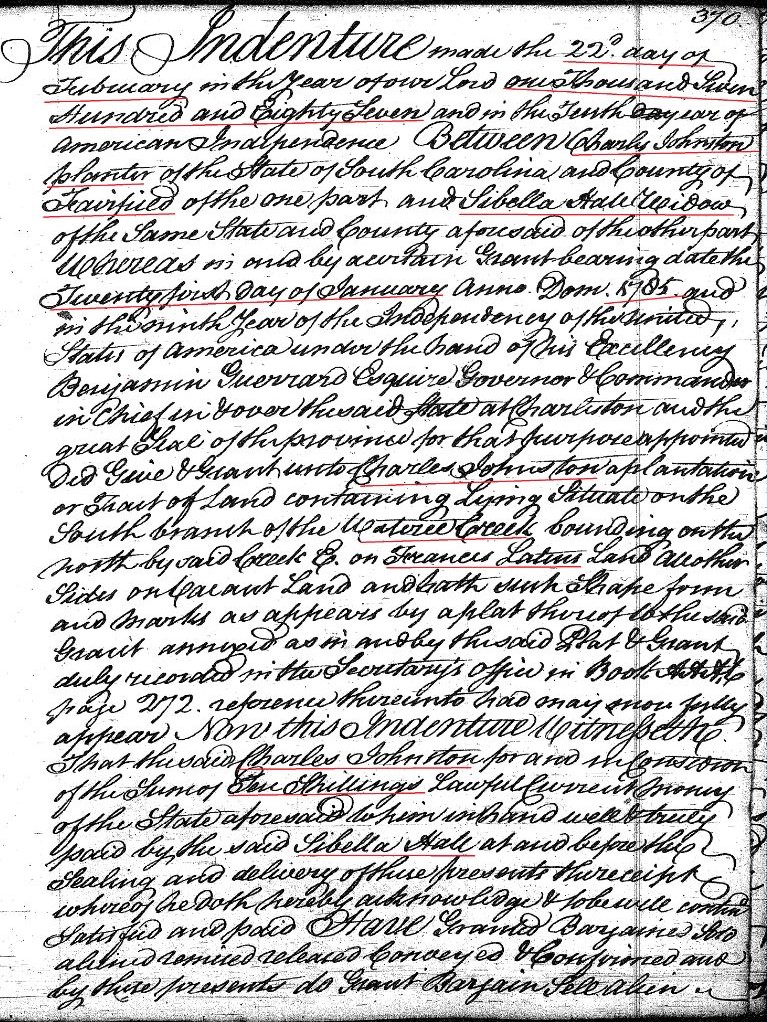 370
This Indenture made the 22d day of
February in the Year of our Lord one Thousand Seven
Hundred and Eighty Seven and in the Tenth year of
American Independence Between Charles Johnston
planter of the State of South Carolina and County of
Fairfield of the one part and Sibella Hall Widow
of the Same State and County aforesaid of the other part
Whereas in and by a certain Grant bearing date the
Twenty first Day of January Anno. Dom. 1785. and
in the ninth Year of the Independency of the United
States of America under the hand of his Excellency
Benjamin Guerrard Esquire Governor & Commander
in Chief in & over the said State at Charleston and the
great Seal of the province for that purpose appointed
Did Give & Grant unto Charles Johnston a plantation
or Tract of Land containing Lying Situate on the
South branch of the Wateree Creek bounding on the
north by said Creek E. on Frances Land all other
Sides on Vacant Land and hath such Shape form
and marks as appears by a plat thereof to the said
Grant annexed as in and by the said Plat & Grant
duly recorded in the Secretary's office in Book
page 272. reference thereunto had may more fully
appear Now this Indenture Witnesseth.
That the said Charles Johnston for and in
of the Sum of Ten Shillings Lawful Current money
of the State aforesaid to him in hand well & truly
paid by the said Sibella Hall at and before the
Sealing and delivery of these presents the receipt
whereof he doth hereby acknowledge &
Satisfied and paid Have Granted Bargained Sold
aliened remised released Conveyed & Confirmed and
by these presents do Grant Bargain Sell Alien